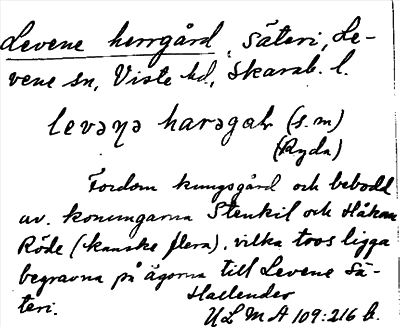 Levene herrgård, säteri, Le-
vene sn, Viste hd, Skarab. l.
levəŋə harəgaḷ (s. m)
(Ryda)
Fordom kungsgård och bebodd
av konungarna Stenkil och Håkan
Röde (kanske flera), vilka tros ligga
begravna på ägorna till Levene Sä-
teri.
Hallender
ULMA 109:216 b.